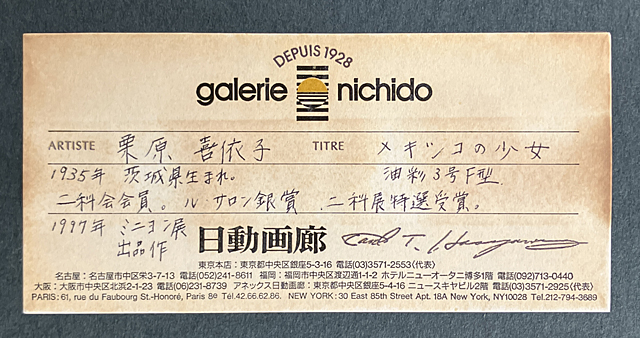 DEPUIS 1928
galerie nichido
ARTISTE 栗原 喜依子 TITRE メキシコの少女
1935年 茨城県生まれ。 油彩3号F型
二科会会員。ル・サロン銀賞 二科展特選受賞。
1997年 ミニヨン展
出品作
日動画廊
東京本店：東京都中央区銀座5-3-16 電話(03)3571-2553〈代表〉
名古屋：名古屋市中区栄3-7-13 電話(052)241-8611 福岡：福岡市中央区渡辺通1-1-2 ホテルニューオータニ博多1階 電話(092)713-0440
大阪：大阪市中央区北浜2-1-23 電話(06)231-8739 アネックス日動画廊：東京都中央区銀座5-4-16 ニュースキヤビル2階 電話(03)3571-2925〈代表〉
PARIS: 61, rue du Faubourg St.-Honoré, Paris 8e Tél.42.66.62.86. NEW YORK: 30 East 85th Street Apt. 18A New York, NY10028 Tel.212-794-3689